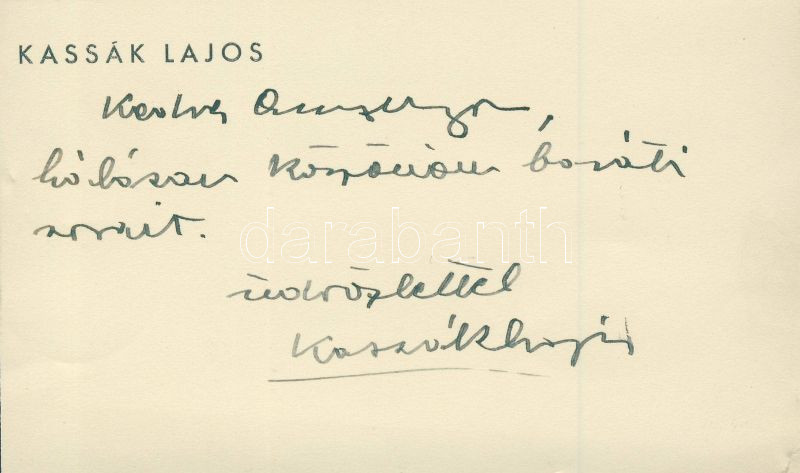 KASSÁK LAJOS
Kedves Asszonyom,
hálásan köszönöm baráti
sorait.
darabanth
üdvözlettel
Kassák Lajos